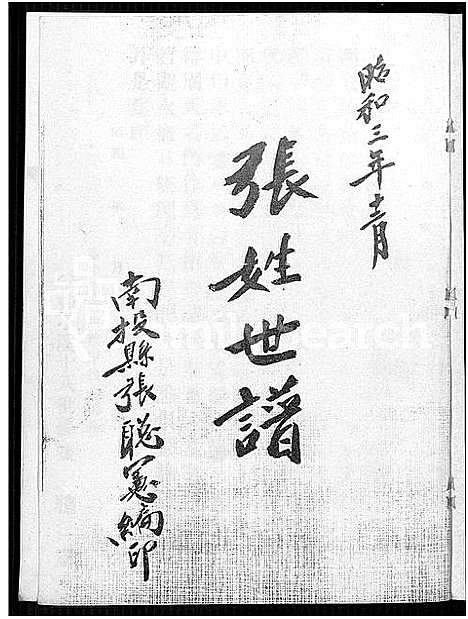 昭和三年十二月
張姓世譜
南投縣張聰憲編印